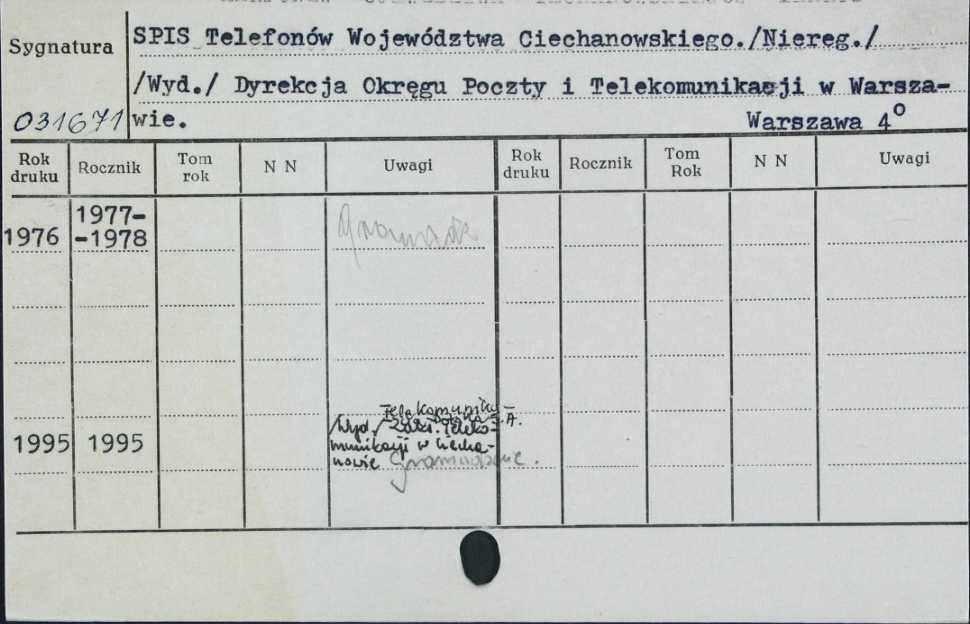 Sygnatura
SPIS Telefonów Województwa Ciechanowskiego./Niereg./
/Wyd./ Dyrekcja Okręgu Poczty i Telekomunikacji w Warsza-
031671 wie. Warszawa 4°
Rok druku Rocznik Tom rok N N Uwagi Rok druku Rocznik Tom Rok N N Uwagi
1977-
1976 -1978
Telekomunika-
/Wyd./ Zakł. Teleko- S.A.
1995 1995 munikacji w Ciecha-
nowie Gromadzenie.